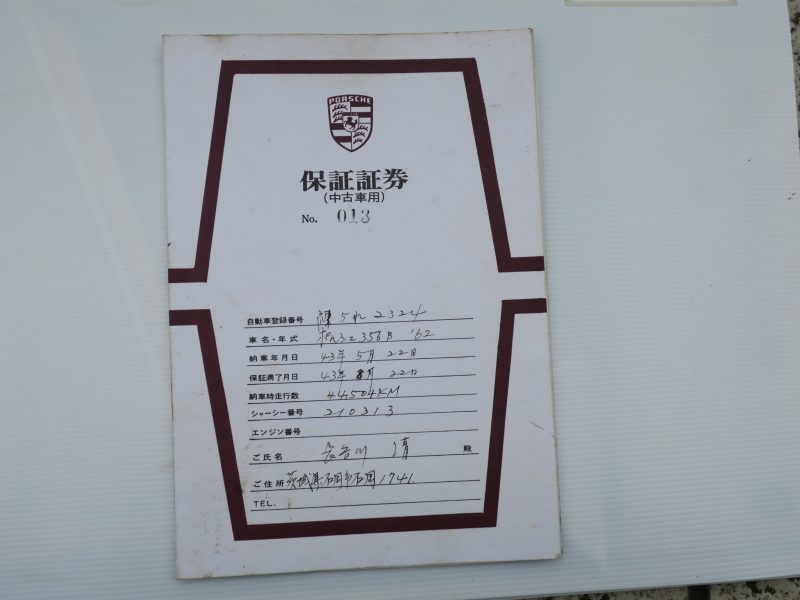 PORSCHE
保証証券
(中古車用)
No. 013
自動車登録番号 練5れ2324
車名・年式 ポルシェ356B '62
納車年月日 43年5月22日
保証満了月日 43年 月22日
納車時走行数 44,504KM
シャーシー番号 210213
エンジン番号
ご氏名 長谷川 清 殿
ご住所 茨城県石岡市石岡1741
TEL.